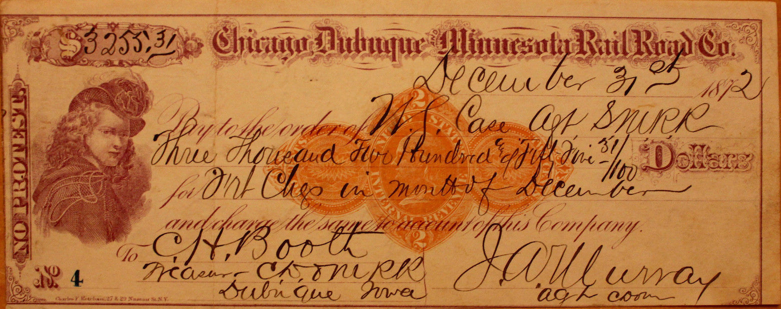 $3255.31
Chicago, Dubuque and Minnesota Rail Road Co.
December 31st 1872
NO PROTEST
Pay to the order of W. J. Case Agt
Three Thousand Two Hundred & Fifty Five 31/100 Dollars
for Frt Chgs in month of December
and charge the same to account of this Company.
To C. H. Booth
J. A. Murray
Treasurer
Dubuque Iowa
agt
No. 4